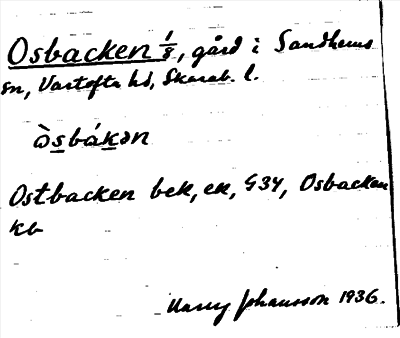 Osbacken 1/8, gård i Sandhems
sn, Vartofta hd, Skarab. l.
òsbákən
Ostbacken bek, ek, G34, Osbacken
kb
Harry Johansson 1936.